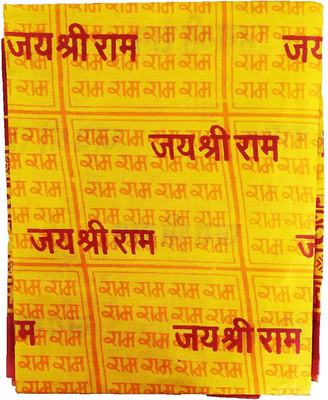 जय श्री राम जय
राम राम राम राम राम राम राम
राम राम राम राम राम राम राम
जय श्री राम
राम राम राम राम राम राम राम
राम राम राम राम राम राम राम
जय श्री राम
राम राम राम राम राम राम राम
राम राम राम राम राम राम राम
म जय श्री राम
राम राम राम राम राम राम राम